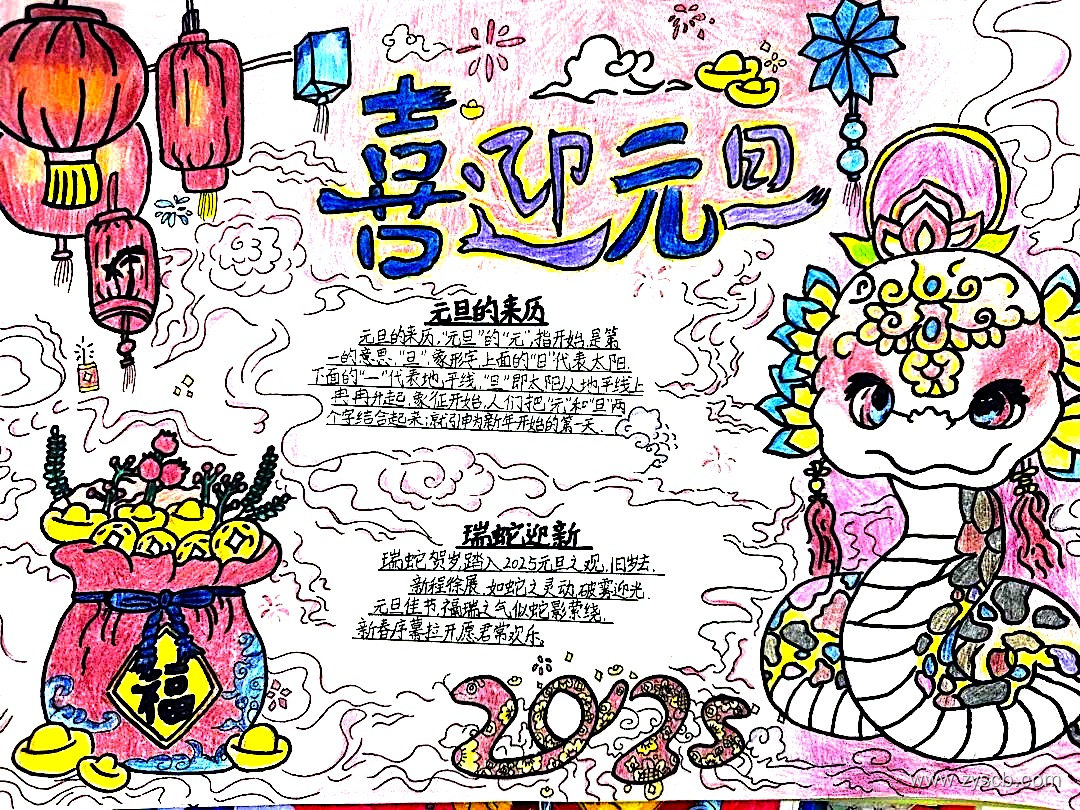 喜迎元旦
元旦的来历
元旦的来历,“元旦”的“元”,指开始,是第
一的意思,“旦”象形字,上面的“日”代表太阳,
下面的“一”代表地平线,“旦”即太阳从地平线上
冉冉升起,象征开始,人们把“元”和“旦”两
个字结合起来,就引申为新年开始的第一天.
瑞蛇迎新
瑞蛇贺岁踏入2025元旦之观,旧岁去,
新程徐展,如蛇之灵动,破雾迎光
元旦佳节,福瑞之气,似蛇影萦绕,
新春序幕拉开愿君常欢乐.
福
2025